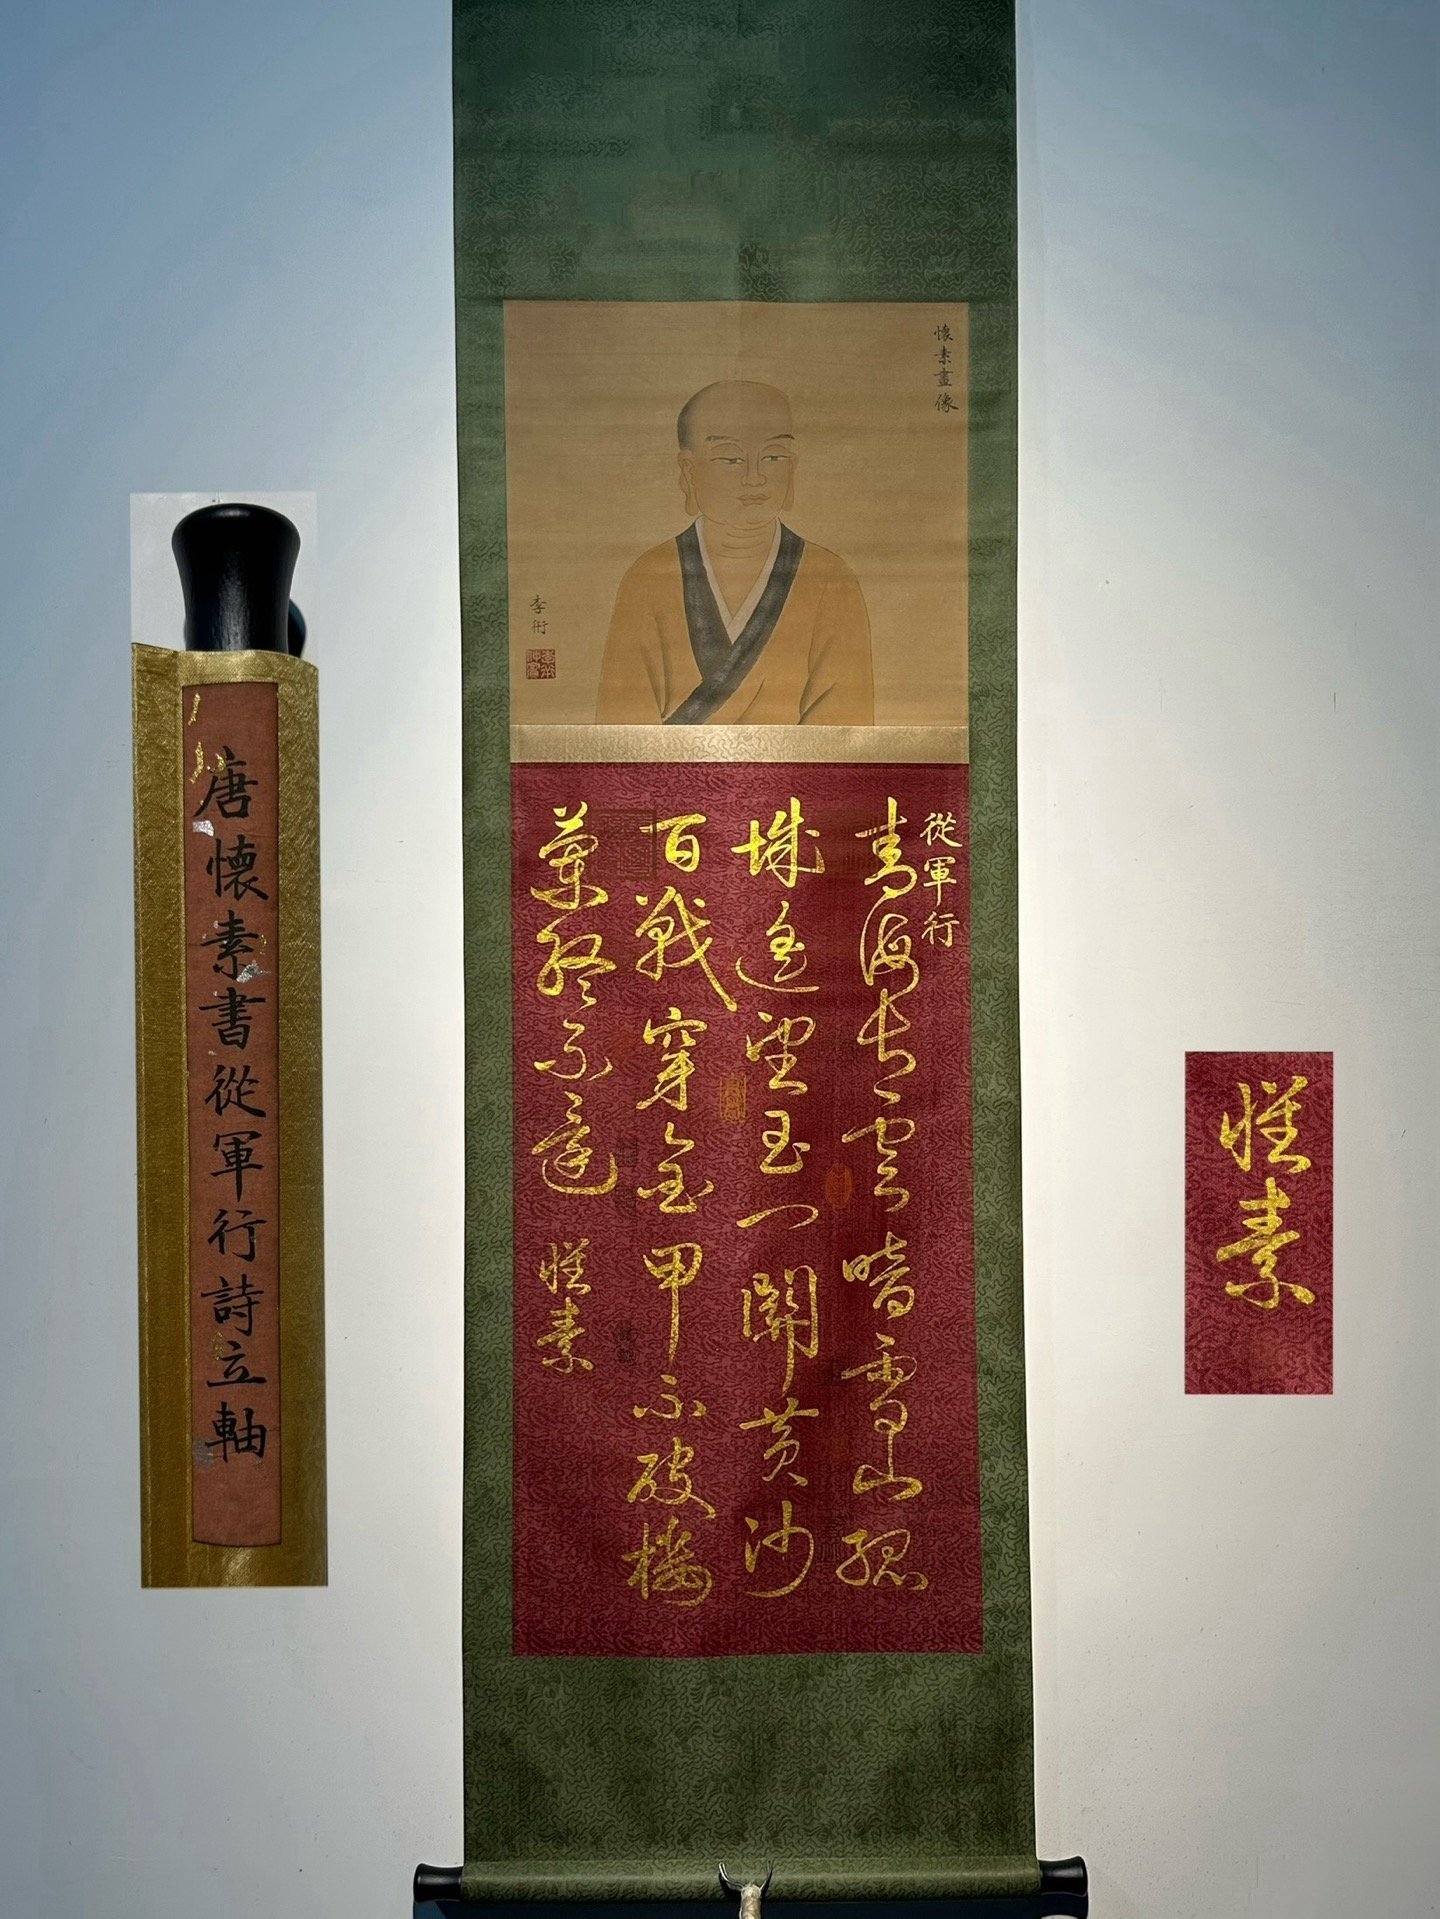 懷素畫像
李衎
從軍行
青海長雲暗雪山孤
城遙望玉門關黃沙
百戰穿金甲不破樓
蘭終不還 懷素
唐懷素書從軍行詩立軸
懷素